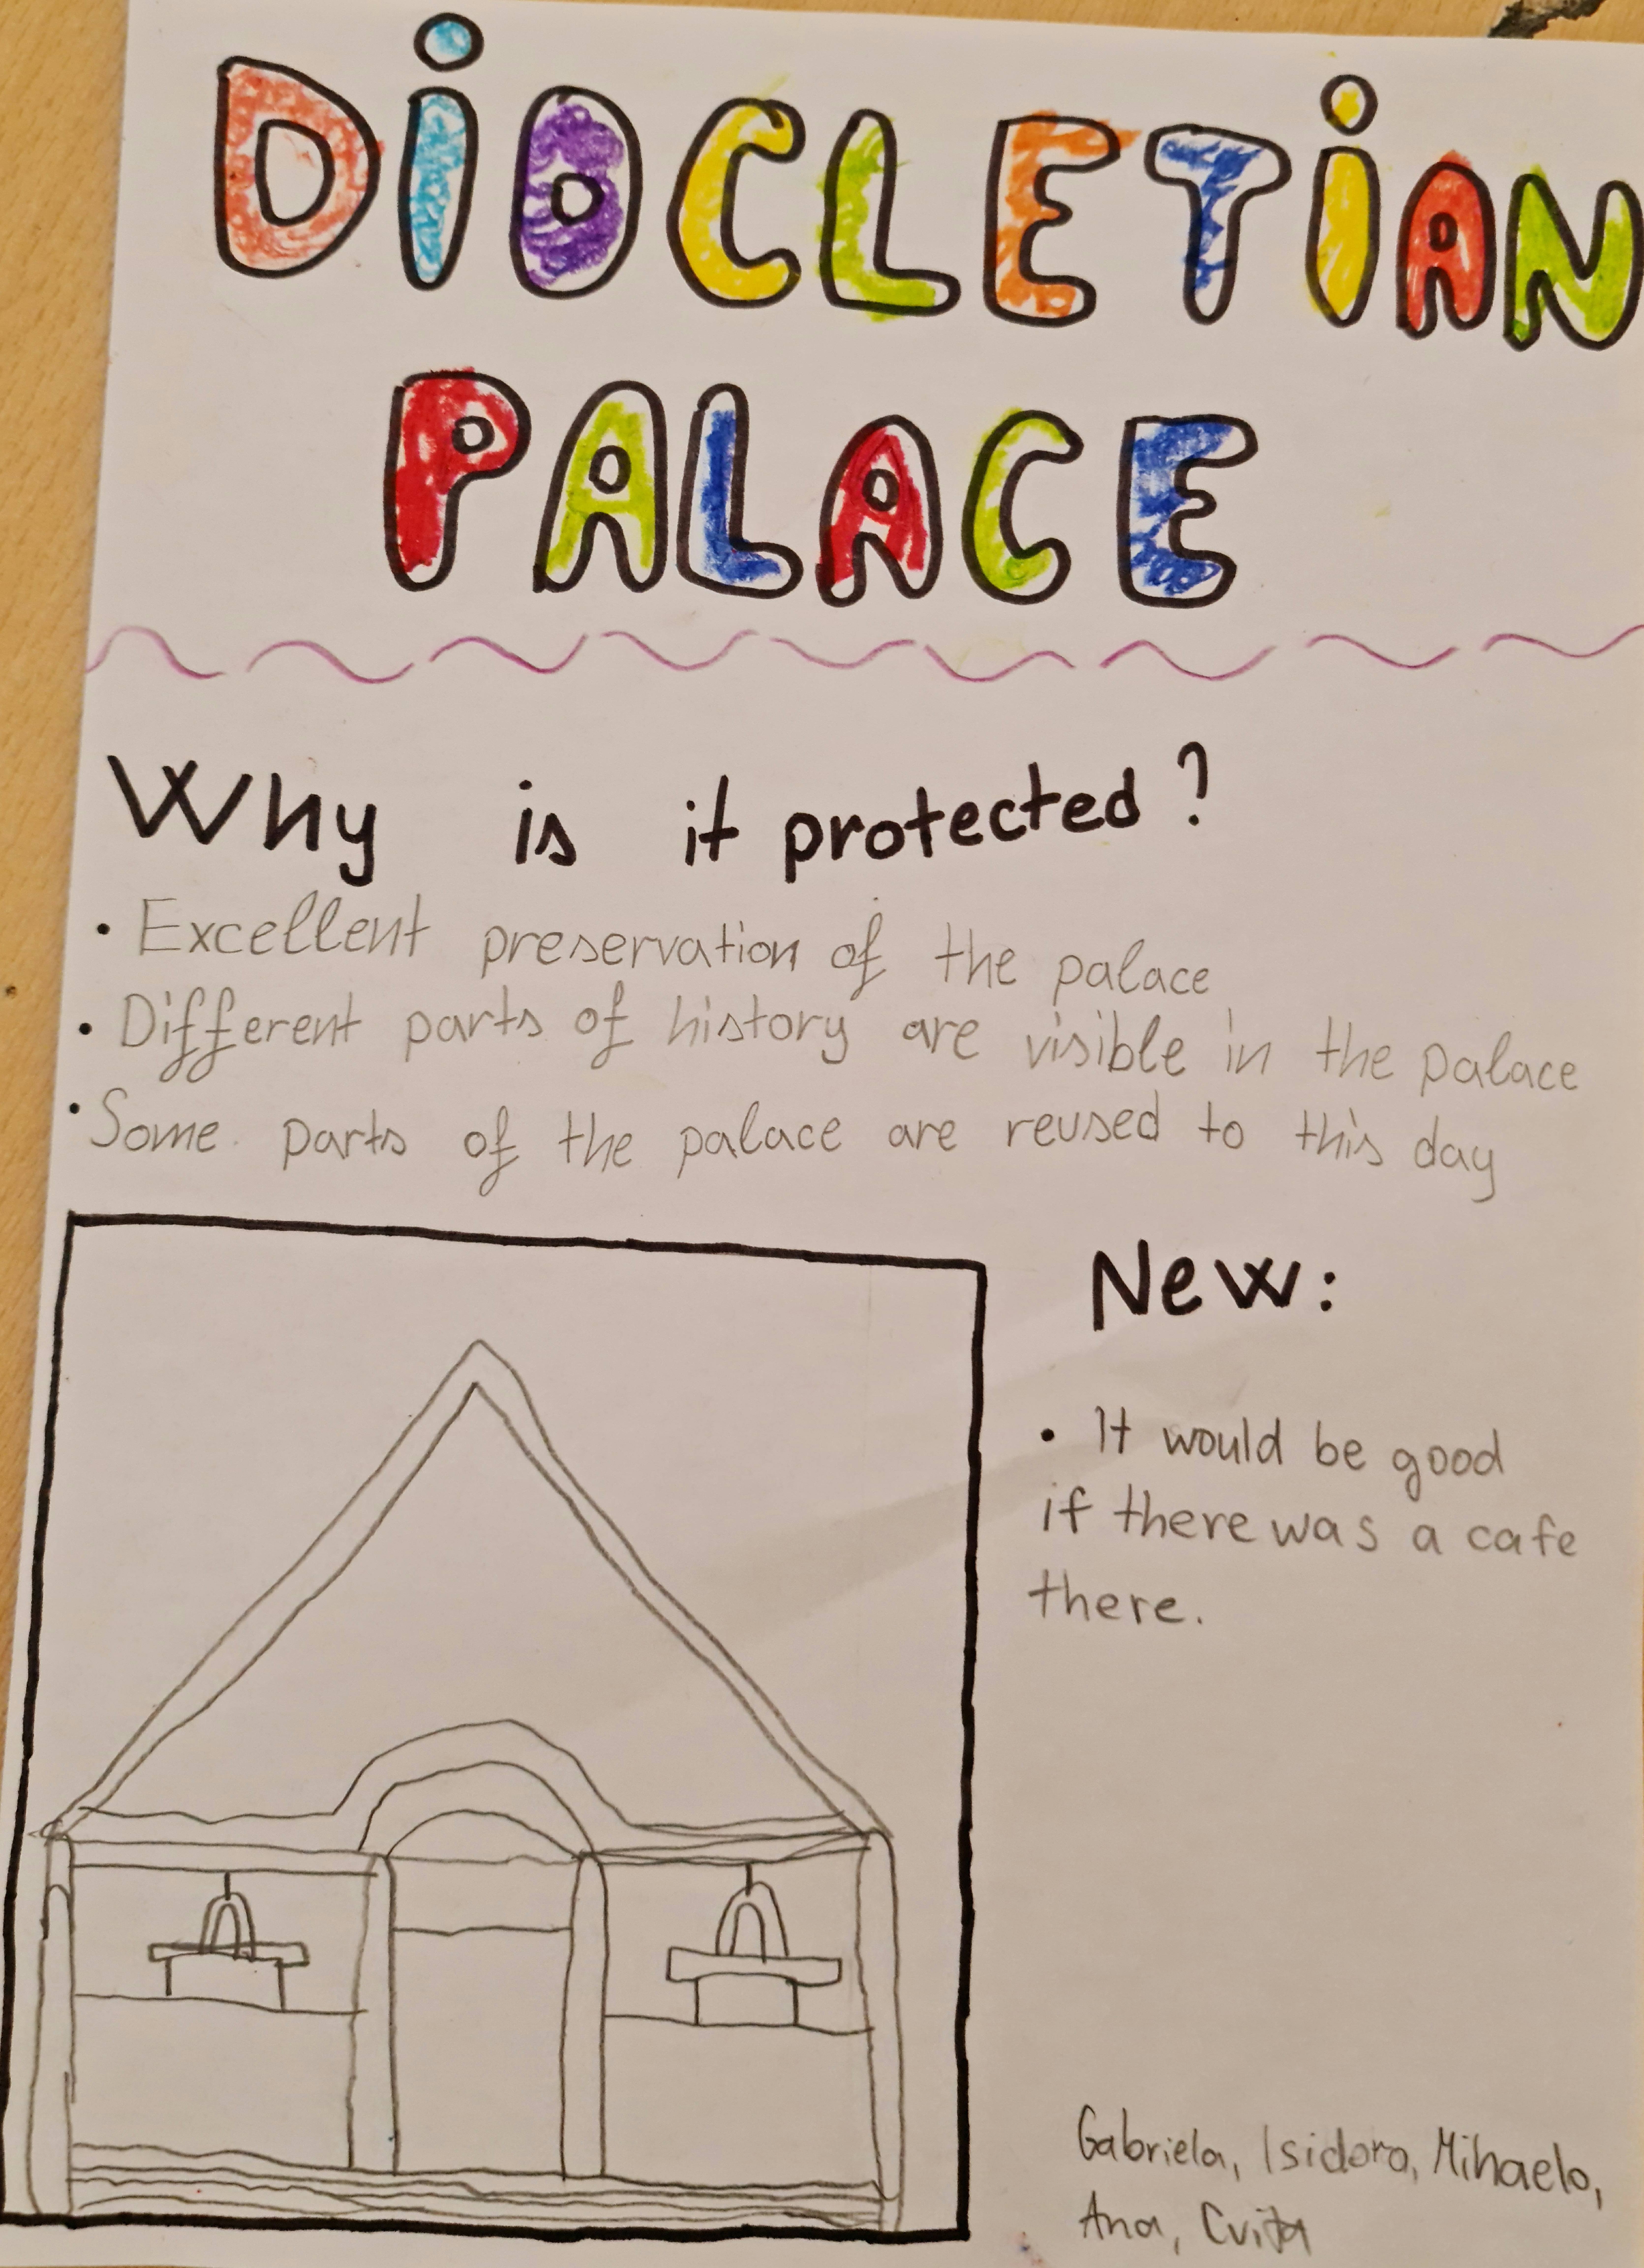 DiOCLETiAN
PALACE
Why is it protected?
• Excellent preservation of the palace
• Different parts of history are visible in the palace
• Some parts of the palace are reused to this day
New:
• It would be good
if there was a cafe
there.
Gabriela, Isidora, Mihaela,
Ana, Cvita